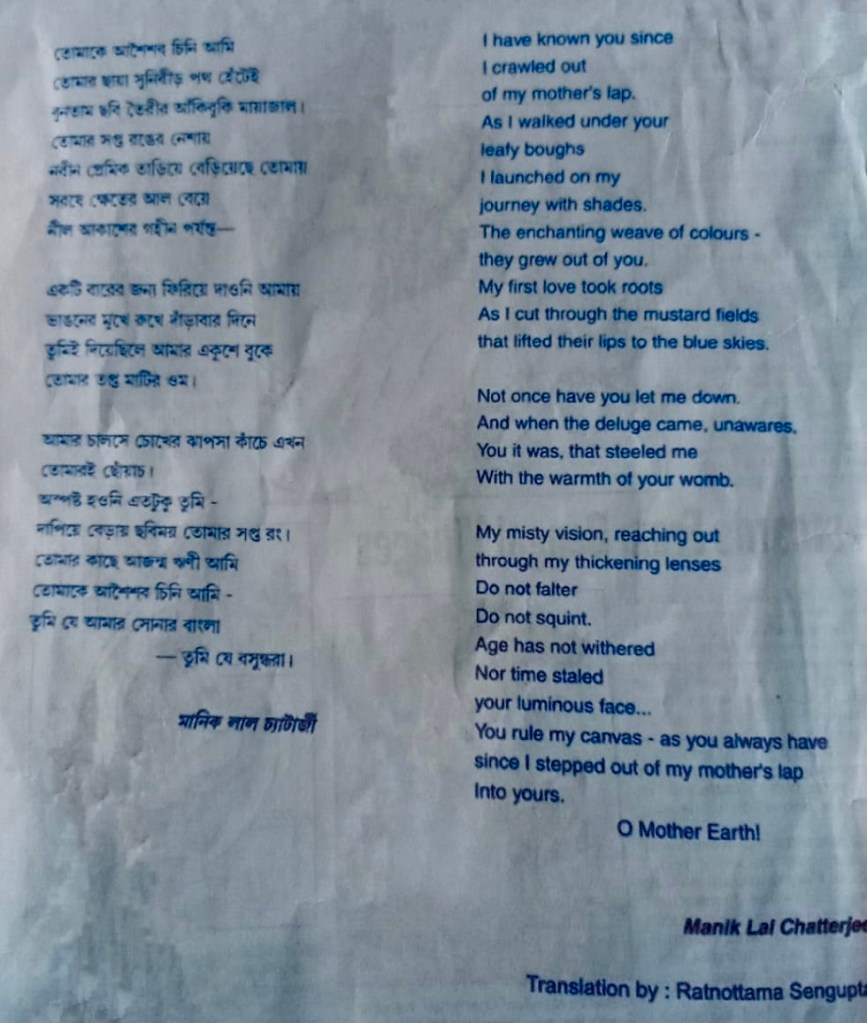 তোমাকে আশৈশব চিনি আমি
তোমার ছায়া সুনিবীড় পথ হেঁটেই
বুনতাম ছবি তৈরীর আঁকিবুকি মায়াজাল।
তোমার সপ্ত রঙের নেশায়
নবীন প্রেমিক তাড়িয়ে বেড়িয়েছে তোমায়
সরষে ক্ষেতের আল বেয়ে
নীল আকাশের গহীন পর্যন্ত—
একটি বারের জন্য ফিরিয়ে দাওনি আমায়
ভাঙনের মুখে রুখে দাঁড়াবার দিনে
তুমিই দিয়েছিলে আমার একুশে বুকে
তোমার তপ্ত মাটির ওম।
আমার চালসে চোখের ঝাপসা কাঁচে এখন
তোমারই ছোঁয়াচ।
অস্পষ্ট হওনি এতটুকু তুমি -
দাপিয়ে বেড়ায় ছবিময় তোমার সপ্ত রং।
তোমার কাছে আজন্ম ঋণী আমি
তোমাকে আশৈশব চিনি আমি -
তুমি যে আমার সোনার বাংলা
— তুমি যে বসুন্ধরা।
মানিক লাল চ্যাটার্জী
I have known you since
I crawled out
of my mother's lap.
As I walked under your
leafy boughs
I launched on my
journey with shades.
The enchanting weave of colours -
they grew out of you.
My first love took roots
As I cut through the mustard fields
that lifted their lips to the blue skies.
Not once have you let me down.
And when the deluge came, unawares,
You it was, that steeled me
With the warmth of your womb.
My misty vision, reaching out
through my thickening lenses
Do not falter
Do not squint.
Age has not withered
Nor time staled
your luminous face...
You rule my canvas - as you always have
since I stepped out of my mother's lap
Into yours.
O Mother Earth!
Manik Lal Chatterjee
Translation by : Ratnottama Sengupta